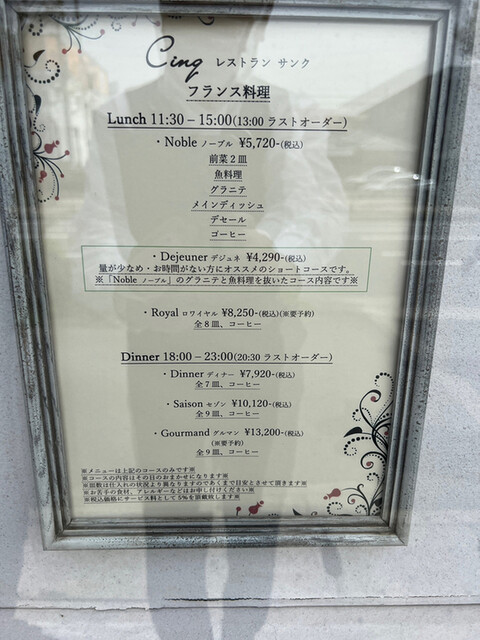 Cinq レストラン サンク
フランス料理
Lunch 11:30 – 15:00(13:00 ラストオーダー)
・Noble ノーブル ¥5,720-(税込)
前菜２皿
魚料理
グラニテ
メインディッシュ
デセール
コーヒー
・Dejeuner デジュネ ¥4,290-(税込)
量が少なめ・お時間がない方にオススメのショートコースです。
※「Noble ノーブル」のグラニテと魚料理を抜いたコース内容です※
・Royal ロワイヤル ¥8,250-(税込)(※要予約)
全８皿、コーヒー
Dinner 18:00 – 23:00(20:30 ラストオーダー)
・Dinner ディナー ¥7,920-(税込)
全７皿、コーヒー
・Saison セゾン ¥10,120-(税込)
全９皿、コーヒー
・Gourmand グルマン ¥13,200-(税込)
(※要予約)
全９皿、コーヒー
※メニューは上記のコースのみです※
※コースの内容はその日のおまかせになります※
※皿数は仕入れの状況より異なりますのであくまで目安とさせて頂きます※
※お苦手の食材、アレルギーなどはお申し付けください※
※税込価格にサービス料として5％を頂戴致します※